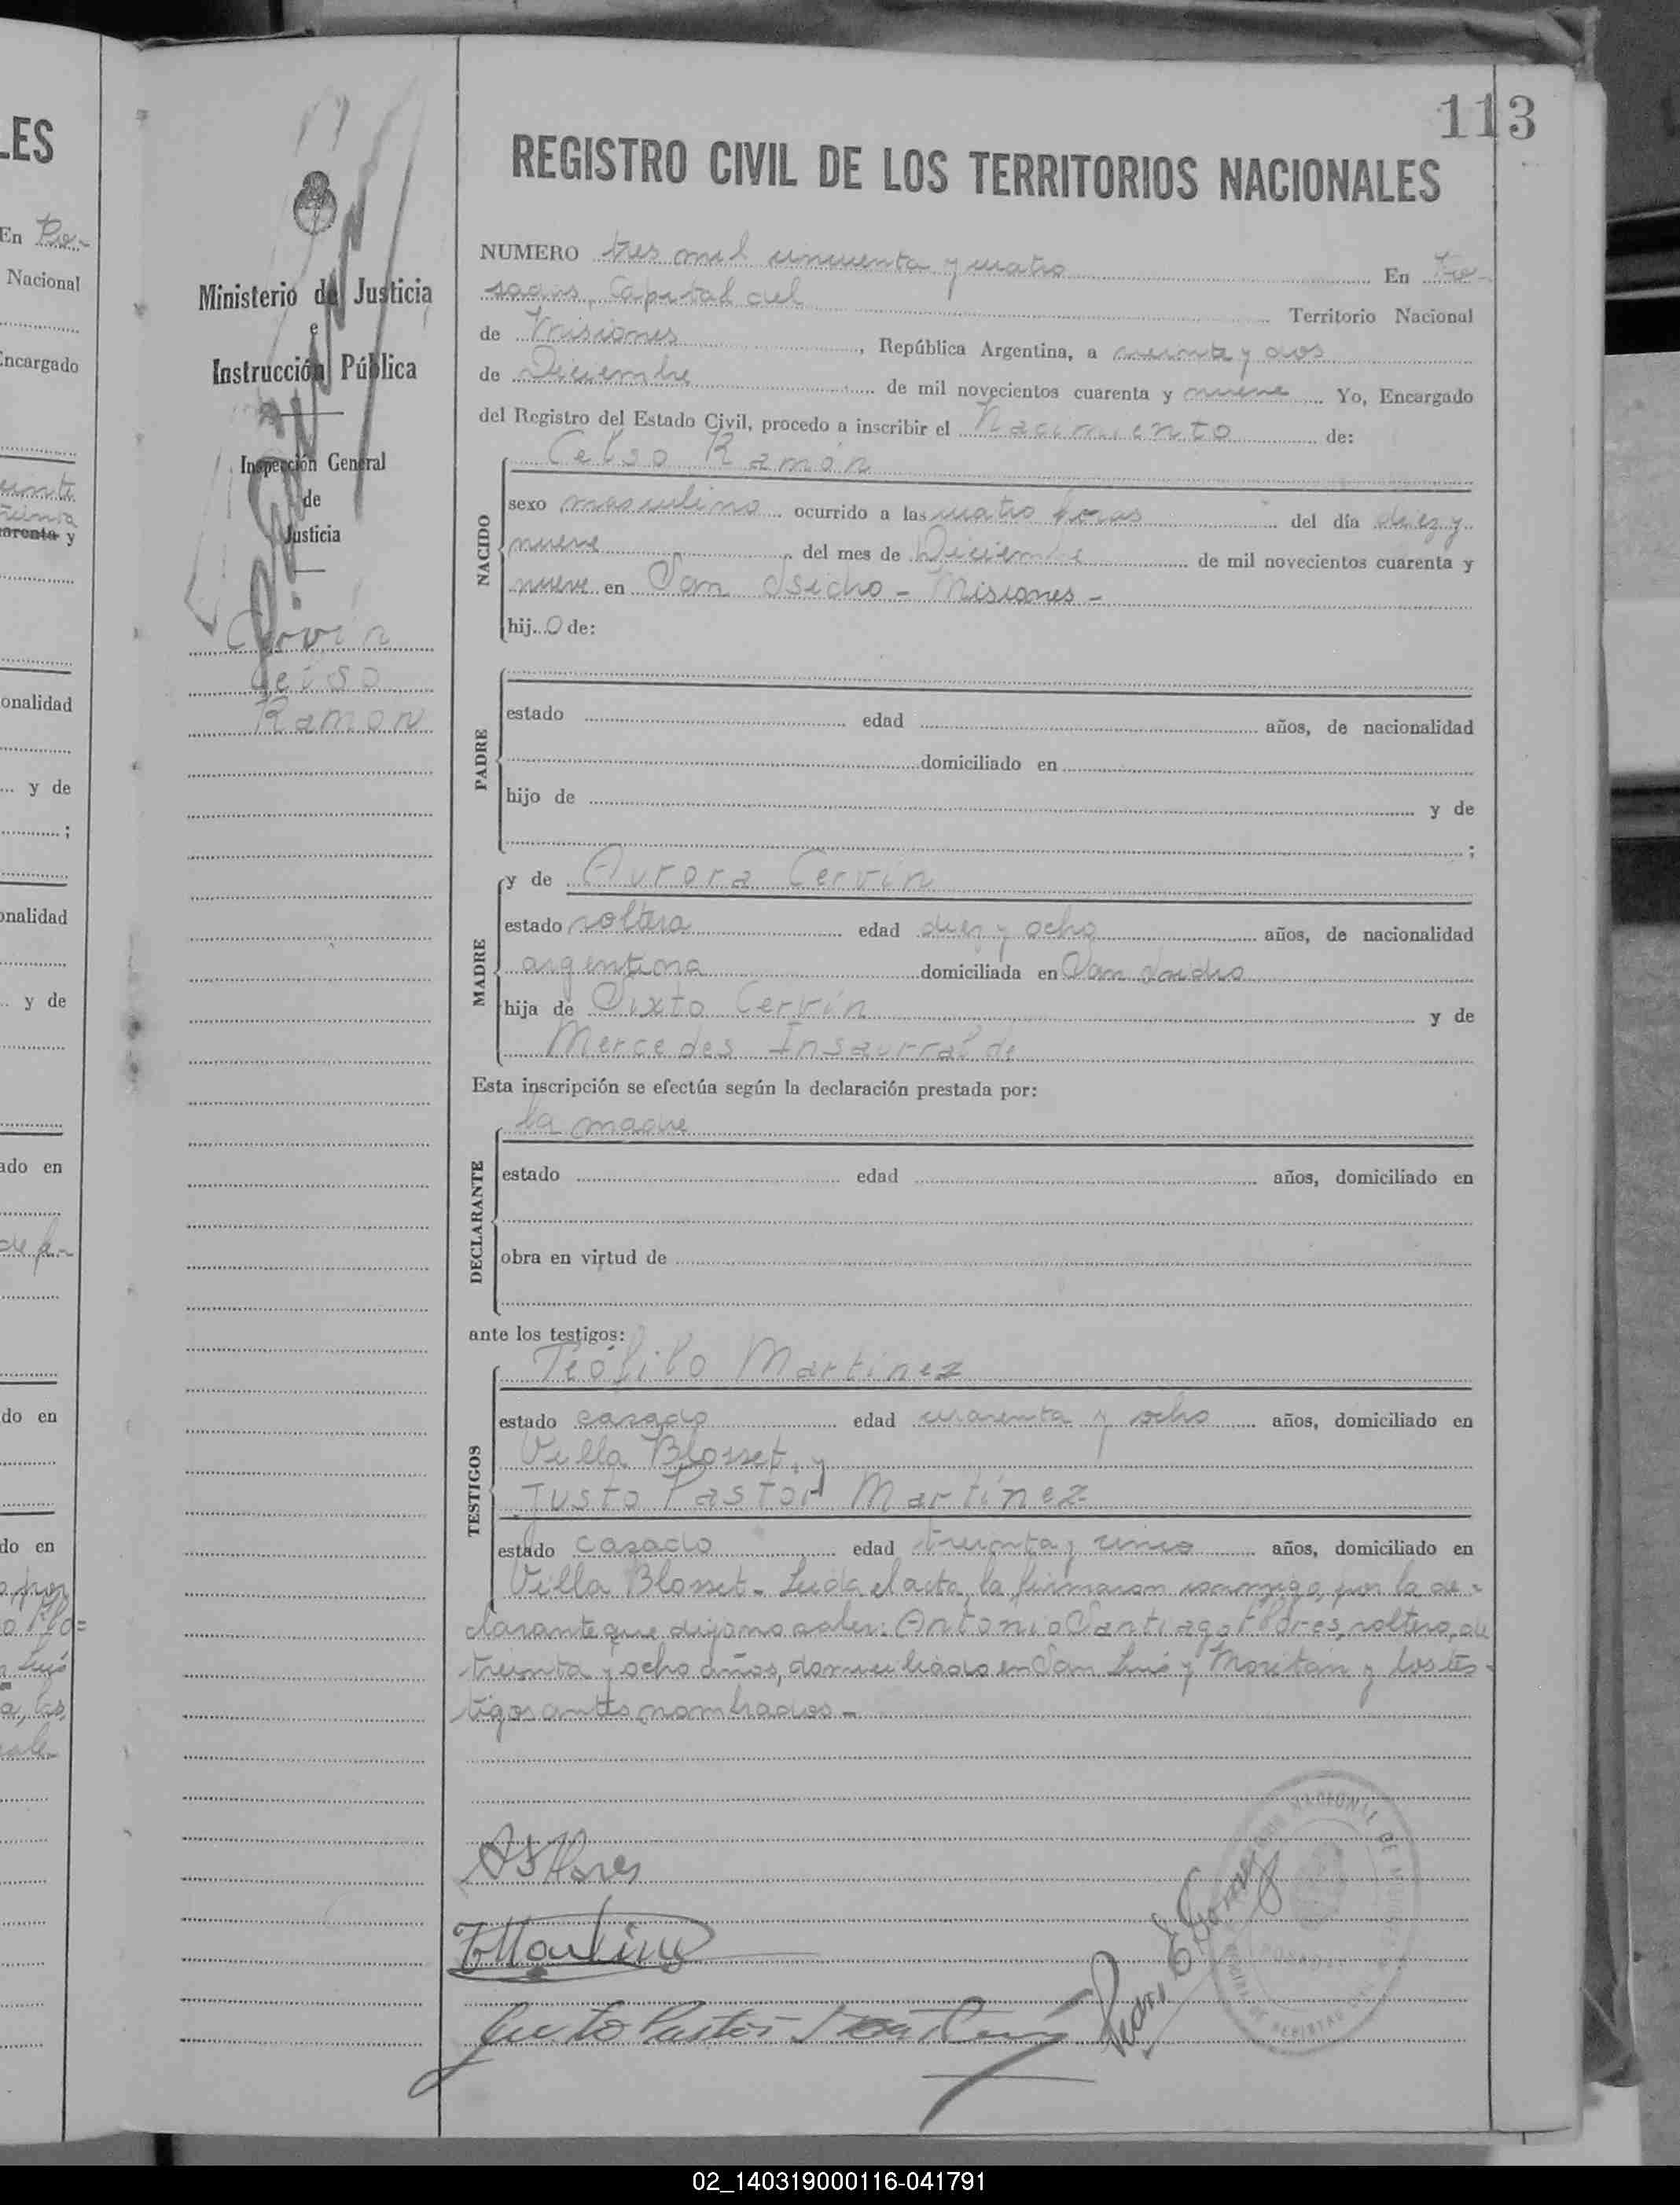 113
REGISTRO CIVIL DE LOS TERRITORIOS NACIONALES
NUMERO tres mil cincuenta y cuatro En Po-
sadas, Capital del Territorio Nacional
de Misiones, República Argentina, a veinte y dos
de Diciembre de mil novecientos cuarenta y nueve Yo, Encargado
del Registro del Estado Civil, procedo a inscribir el Nacimiento de:
Celso Ramón
sexo masculino ocurrido a las cuatro horas del día diez y
nueve del mes de Diciembre de mil novecientos cuarenta y
nueve en San Isidro - Misiones -
hijo de:
NACIDO
estado edad años, de nacionalidad
domiciliado en
hijo de y de
;
PADRE
y de Aurora Cervín
estado soltera edad diez y ocho años, de nacionalidad
argentina domiciliada en San Isidro
hija de Sixto Cervín y de
Mercedes Insaurralde
MADRE
Esta inscripción se efectúa según la declaración prestada por:
la madre
estado edad años, domiciliado en
obra en virtud de
DECLARANTE
ante los testigos:
Teófilo Martinez
estado casado edad cuarenta y ocho años, domiciliado en
Villa Blosset, y
Justo Pastor Martínez
estado casado edad treinta y cinco años, domiciliado en
TESTIGOS
Villa Blosset - Leida el acta, la firmaron conmigo, por la de-
clarante que dijo no saber: Antonio Santiago Flores, soltero, de
treinta y ocho años, domiciliado en San Luis y Moritan y los tes-
tigos antes nombrados -
A S Flores
T Martinez
Justo Pastor Martinez
Ministerio de Justicia
e
Instrucción Pública
Inspección General
de
Justicia
Cervín
Celso
Ramón
LES
En Po-
Nacional
Encargado
cuarenta y
onalidad
y de
;
onalidad
y de
ado en
do en
do en
por
02_140319000116-041791